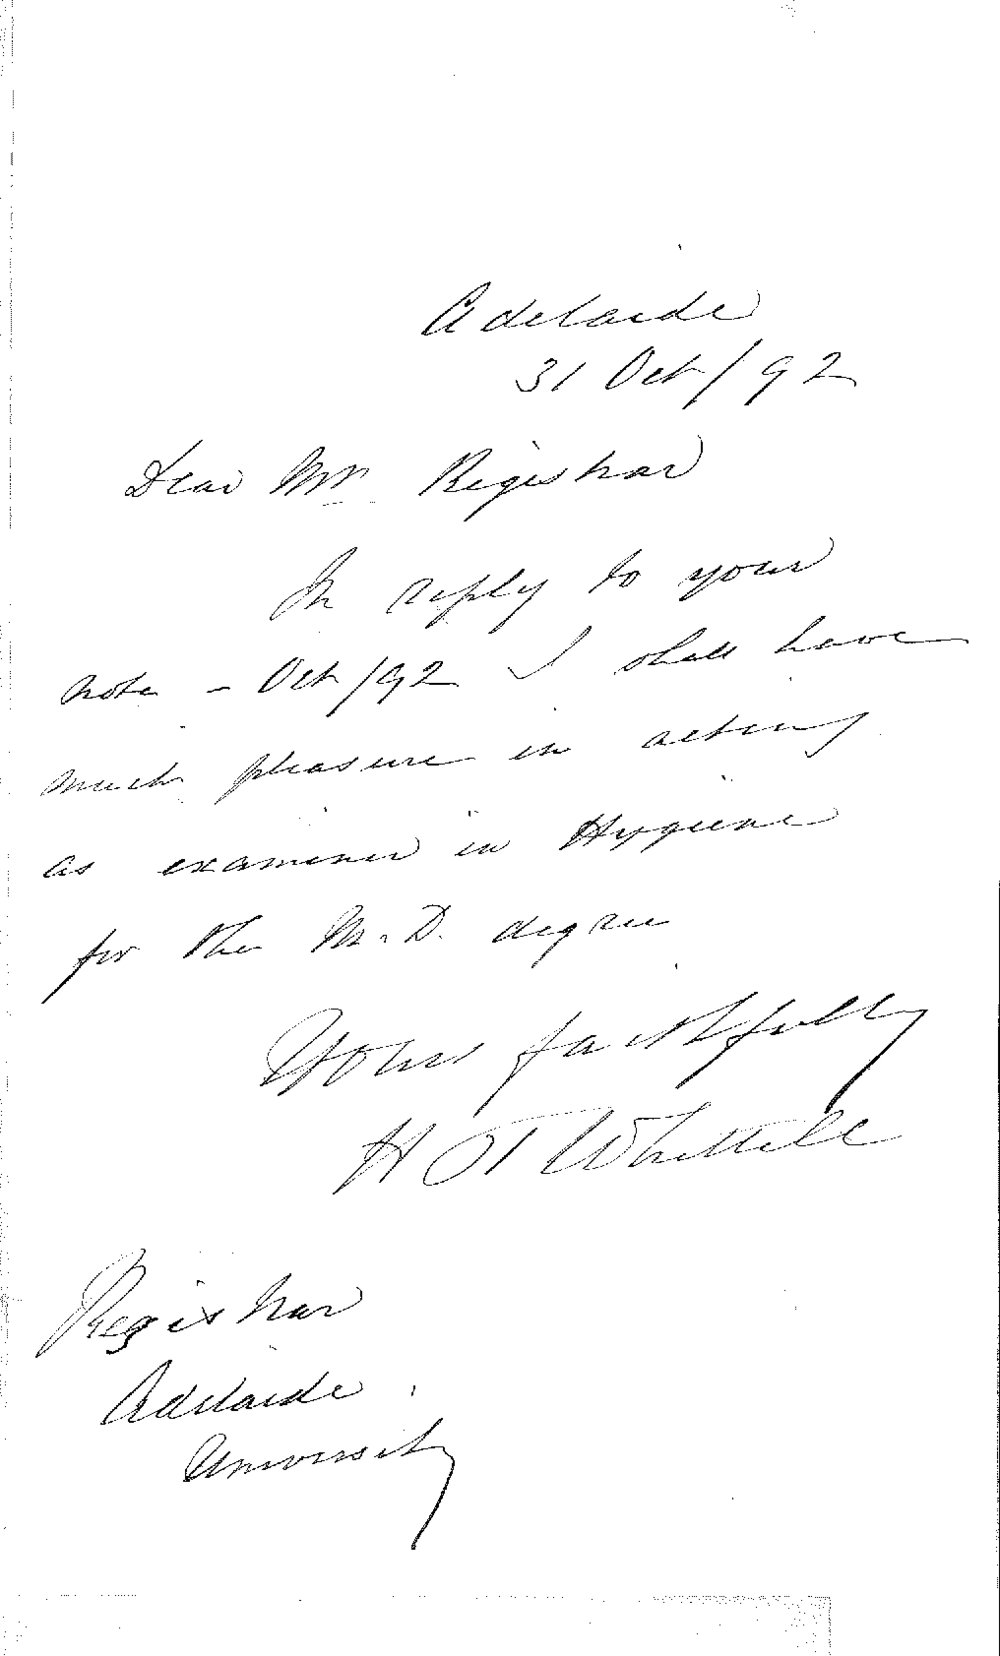 Adelaide
31 Oct/92
Dear Mr Registrar
In reply to your
note - Oct/92 I shall have
much pleasure in acting
as examiner in Hygiene
for the M.D. degree
Yours faithfully
H T Whittell
Registrar
Adelaide
University